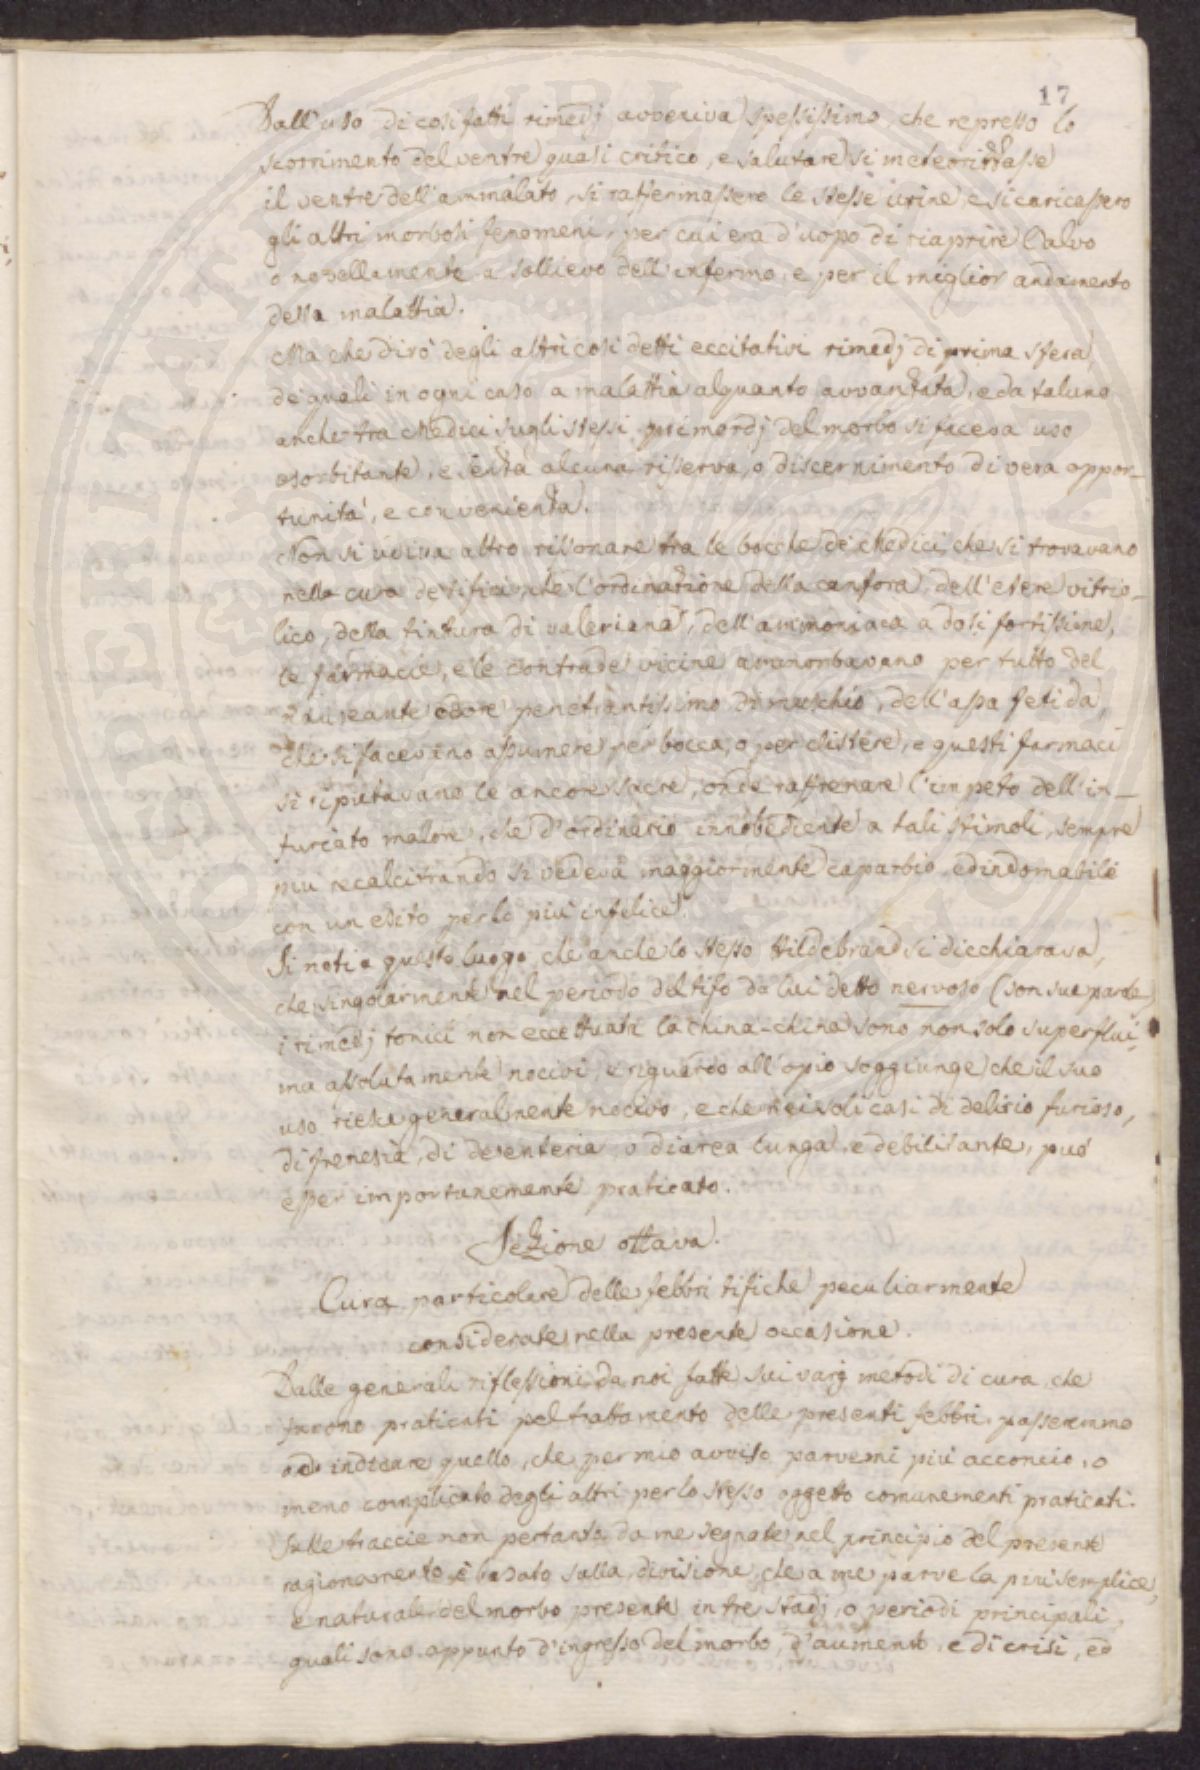 17
Dall'uso di così fatti rimedj avveniva spessissimo, che represso lo
scorrimento del ventre quasi critico, e salutare si meteorizzasse
il ventre dell'ammalato, si raffermassero le stesse urine, e si caricassero
gli altri morbosi fenomeni, per cui era d'uopo di riaprire l'alvo
o novellamente a sollievo dell'infermo, e per il miglior andamento
della malattia.
Ma che dirò degli altri così detti eccitativi rimedj di prima sfera,
de quali in ogni caso a malattia alquanto avvanzata, e da taluno
anche tra Medici sugli stessi primordj del morbo si faceva uso
esorbitante, e senza alcuna risserva, o discernimento di vera oppor-
tunità, e convenienza.
Non si udiva altro risonare tra le bocche de Medici, che si trovavano
nella cura de tifici, che l'ordinazione della canfora, dell'etere vitrio-
lico, della tintura di valeriana, dell'ammoniaca a dosi fortissime,
le farmacie, e le contrade vicine ammorbavano per tutto del
nauseante odore penetrantissimo di muschio, dell'assa fetida,
che si facevano assumere per bocca, o per clistere, e questi farmaci
si riputavano le ancore sacre, onde raffrenare l'impeto dell'in-
furiato malore, che d'ordinario innobediente a tali stimoli, sempre
più recalcitrando si vedeva maggiormente caparbio, ed indomabile
con un esito per lo più infelice.
Si noti a questo luogo, che anche lo stesso Hildebrand si dicchiarava,
che singolarmente nel periodo del tifo da lui detto nervoso (son sue parole)
i rimedj tonici non eccettuati la china-china sono non solo superflui,
ma assolutamente nocivi, e riguardo all'opio soggiunge che il suo
uso riesce generalmente nocivo, e che nei soli casi di delirio furioso,
di frenesia, di desenteria, o diarea lunga, e debilitante, può
esser importunemente praticato.
Sezione ottava.
Cura particolare delle febbri tifiche peculiarmente
considerate nella presente occasione.
Dalle generali riflessioni da noi fatte sui varj metodi di cura, che
furono praticati pel trattamento delle presenti febbri, passeremmo
ad indicare quello, che per mio avviso parvemi più acconcio, o
meno complicato degli altri per lo stesso oggetto comunementi praticati.
Sulle traccie non pertanto da me segnate nel principio del presente
ragionamento, e basato sulla divisione, che a me parve la più semplice,
e naturale del morbo presente in tre stadj, o periodi principali,
quali sono appunto d'ingresso del morbo, d'aumento, e di crisi, ed